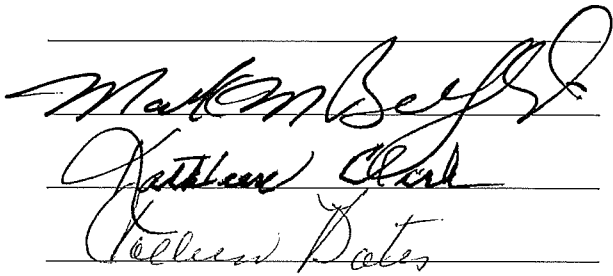 Mark M
Kathleen Clark
Colleen Bates